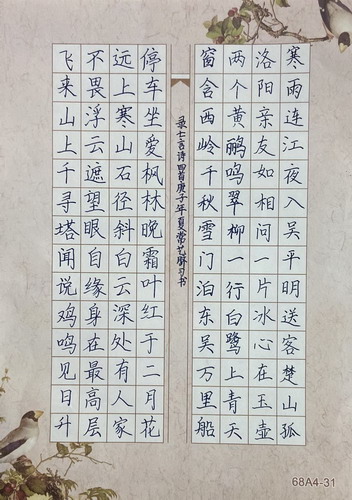 寒雨连江夜入吴平明送客楚山孤
洛阳亲友如相问一片冰心在玉壶
两个黄鹂鸣翠柳一行白鹭上青天
窗含西岭千秋雪门泊东吴万里船
录七言诗四首庚子年夏常艺习书
停车坐爱枫林晚霜叶红于二月花
远上寒山石径斜白云深处有人家
不畏浮云遮望眼自缘身在最高层
飞来山上千寻塔闻说鸡鸣见日升
68A4-31